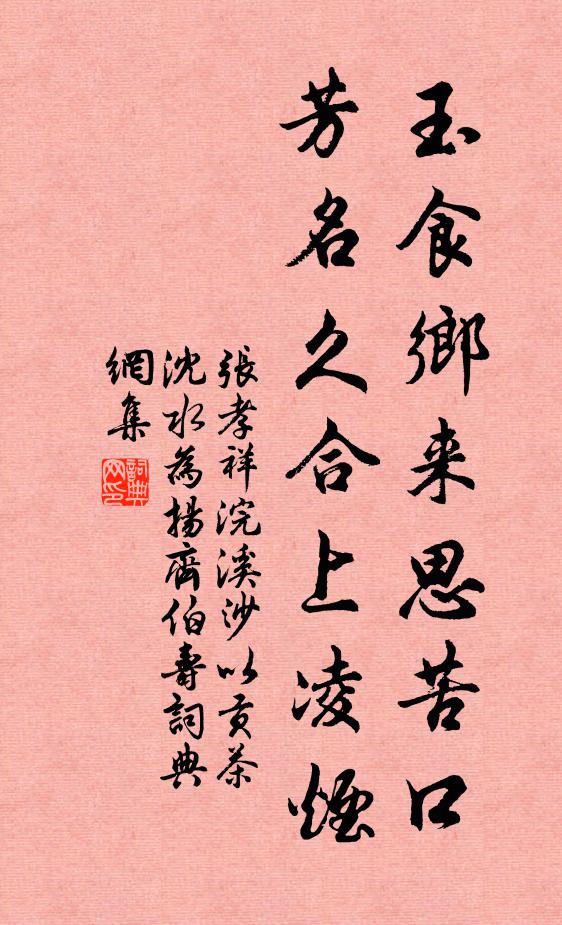 玉食鄉来思苦口
芳名久合上凌煙
張孝祥浣溪沙以贡茶
沈水為揚齊伯壽詞典
網集
詞典
网印